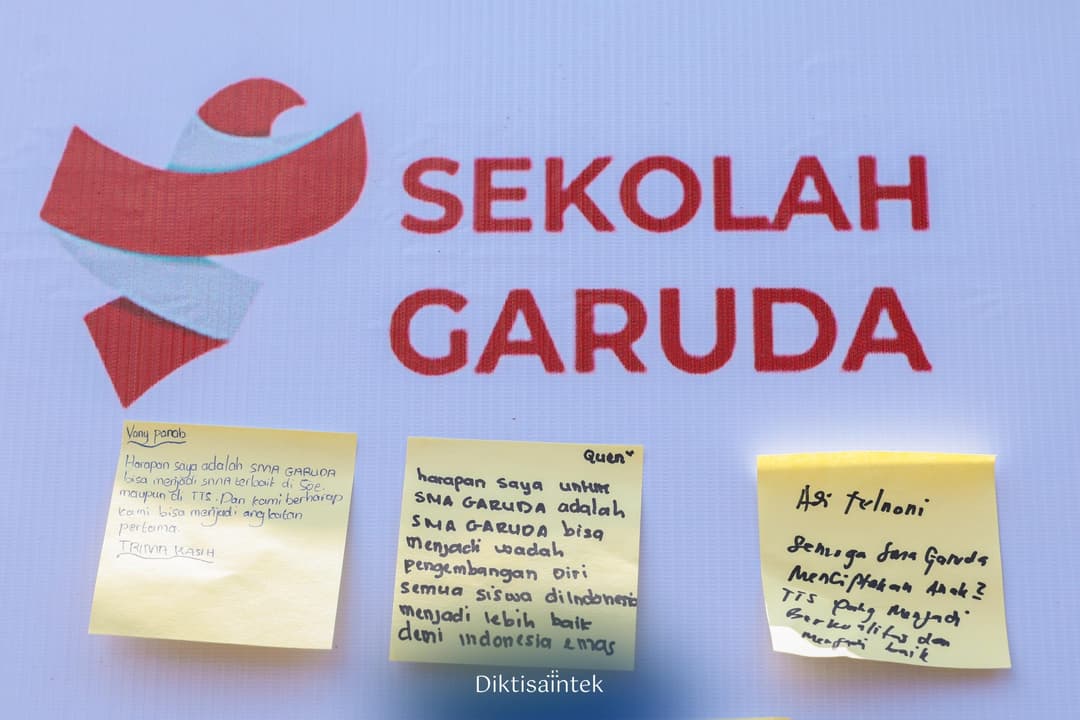 SEKOLAH
GARUDA
Vony panab
Harapan saya adalah SMA GARUDA
bisa menjadi SMA terbaik di Soe
maupun di TTS. Dan kami berharap
kami bisa menjadi angkatan
pertama.
TRIMA KASIH
Quen
harapan saya untuk
SMA GARUDA adalah
SMA GARUDA bisa
menjadi wadah
pengembangan Diri
semua siswa diIndonesia
menjadi lebih baik
demi indonesia emas
Adi telnoni
Semoga Sma Garuda
Menciptakan Anak2
TTS yang Menjadi
Berkualitas dan
Menjadi baik
Diktisaintek